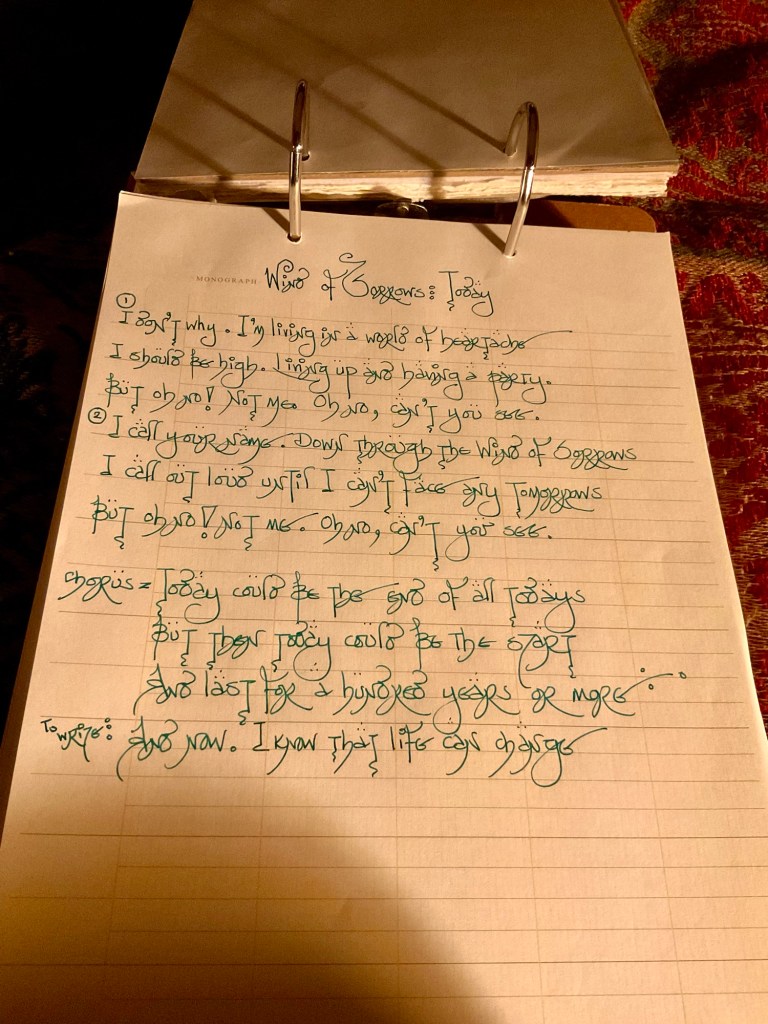 MONOGRAPH Wind of Sorrows: Today
① I don't why. I'm living in a world of heartache
I should be high. Living up and having a party.
But oh no! Not me. Oh no, can't you see.
② I call your name. Down through the Wind of Sorrows
I call out loud until I can't face any Tomorrows
But oh no! Not me. Oh no, can't you see.
Chorus = Today could be the end of all todays
But then today could be the start
And last for a hundred years or more
To write: And now. I know that life can change